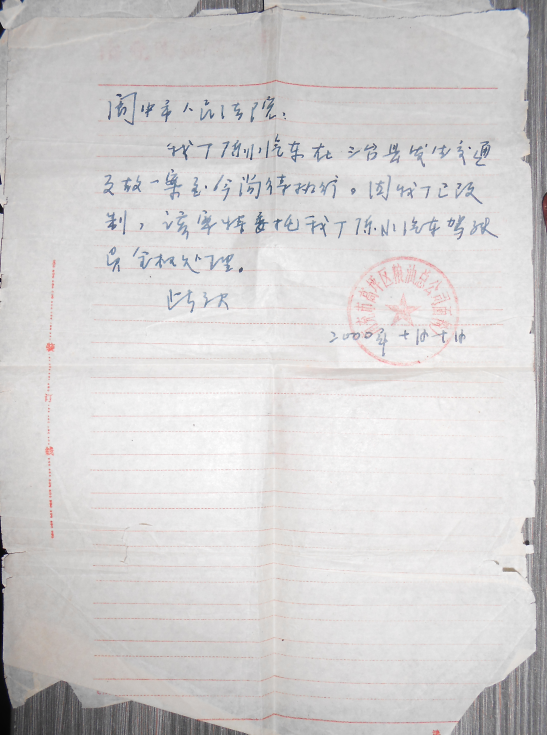 阆中市人民法院:
我厂原小汽车在三台县发生交通
事故一案至今尚待执行。因我厂已改
制,该案特委托我厂原小汽车驾驶
员全权处理。
此致
2000年十月十日
装
订
线